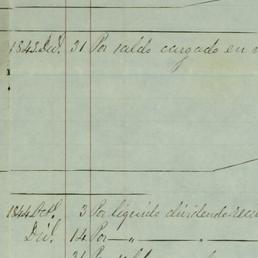 1843. Dic. 31 Por saldo cargado en
1844 Oct. 3 Por liquido dividendo
Dic. 14 Por — „ — „
31 Por